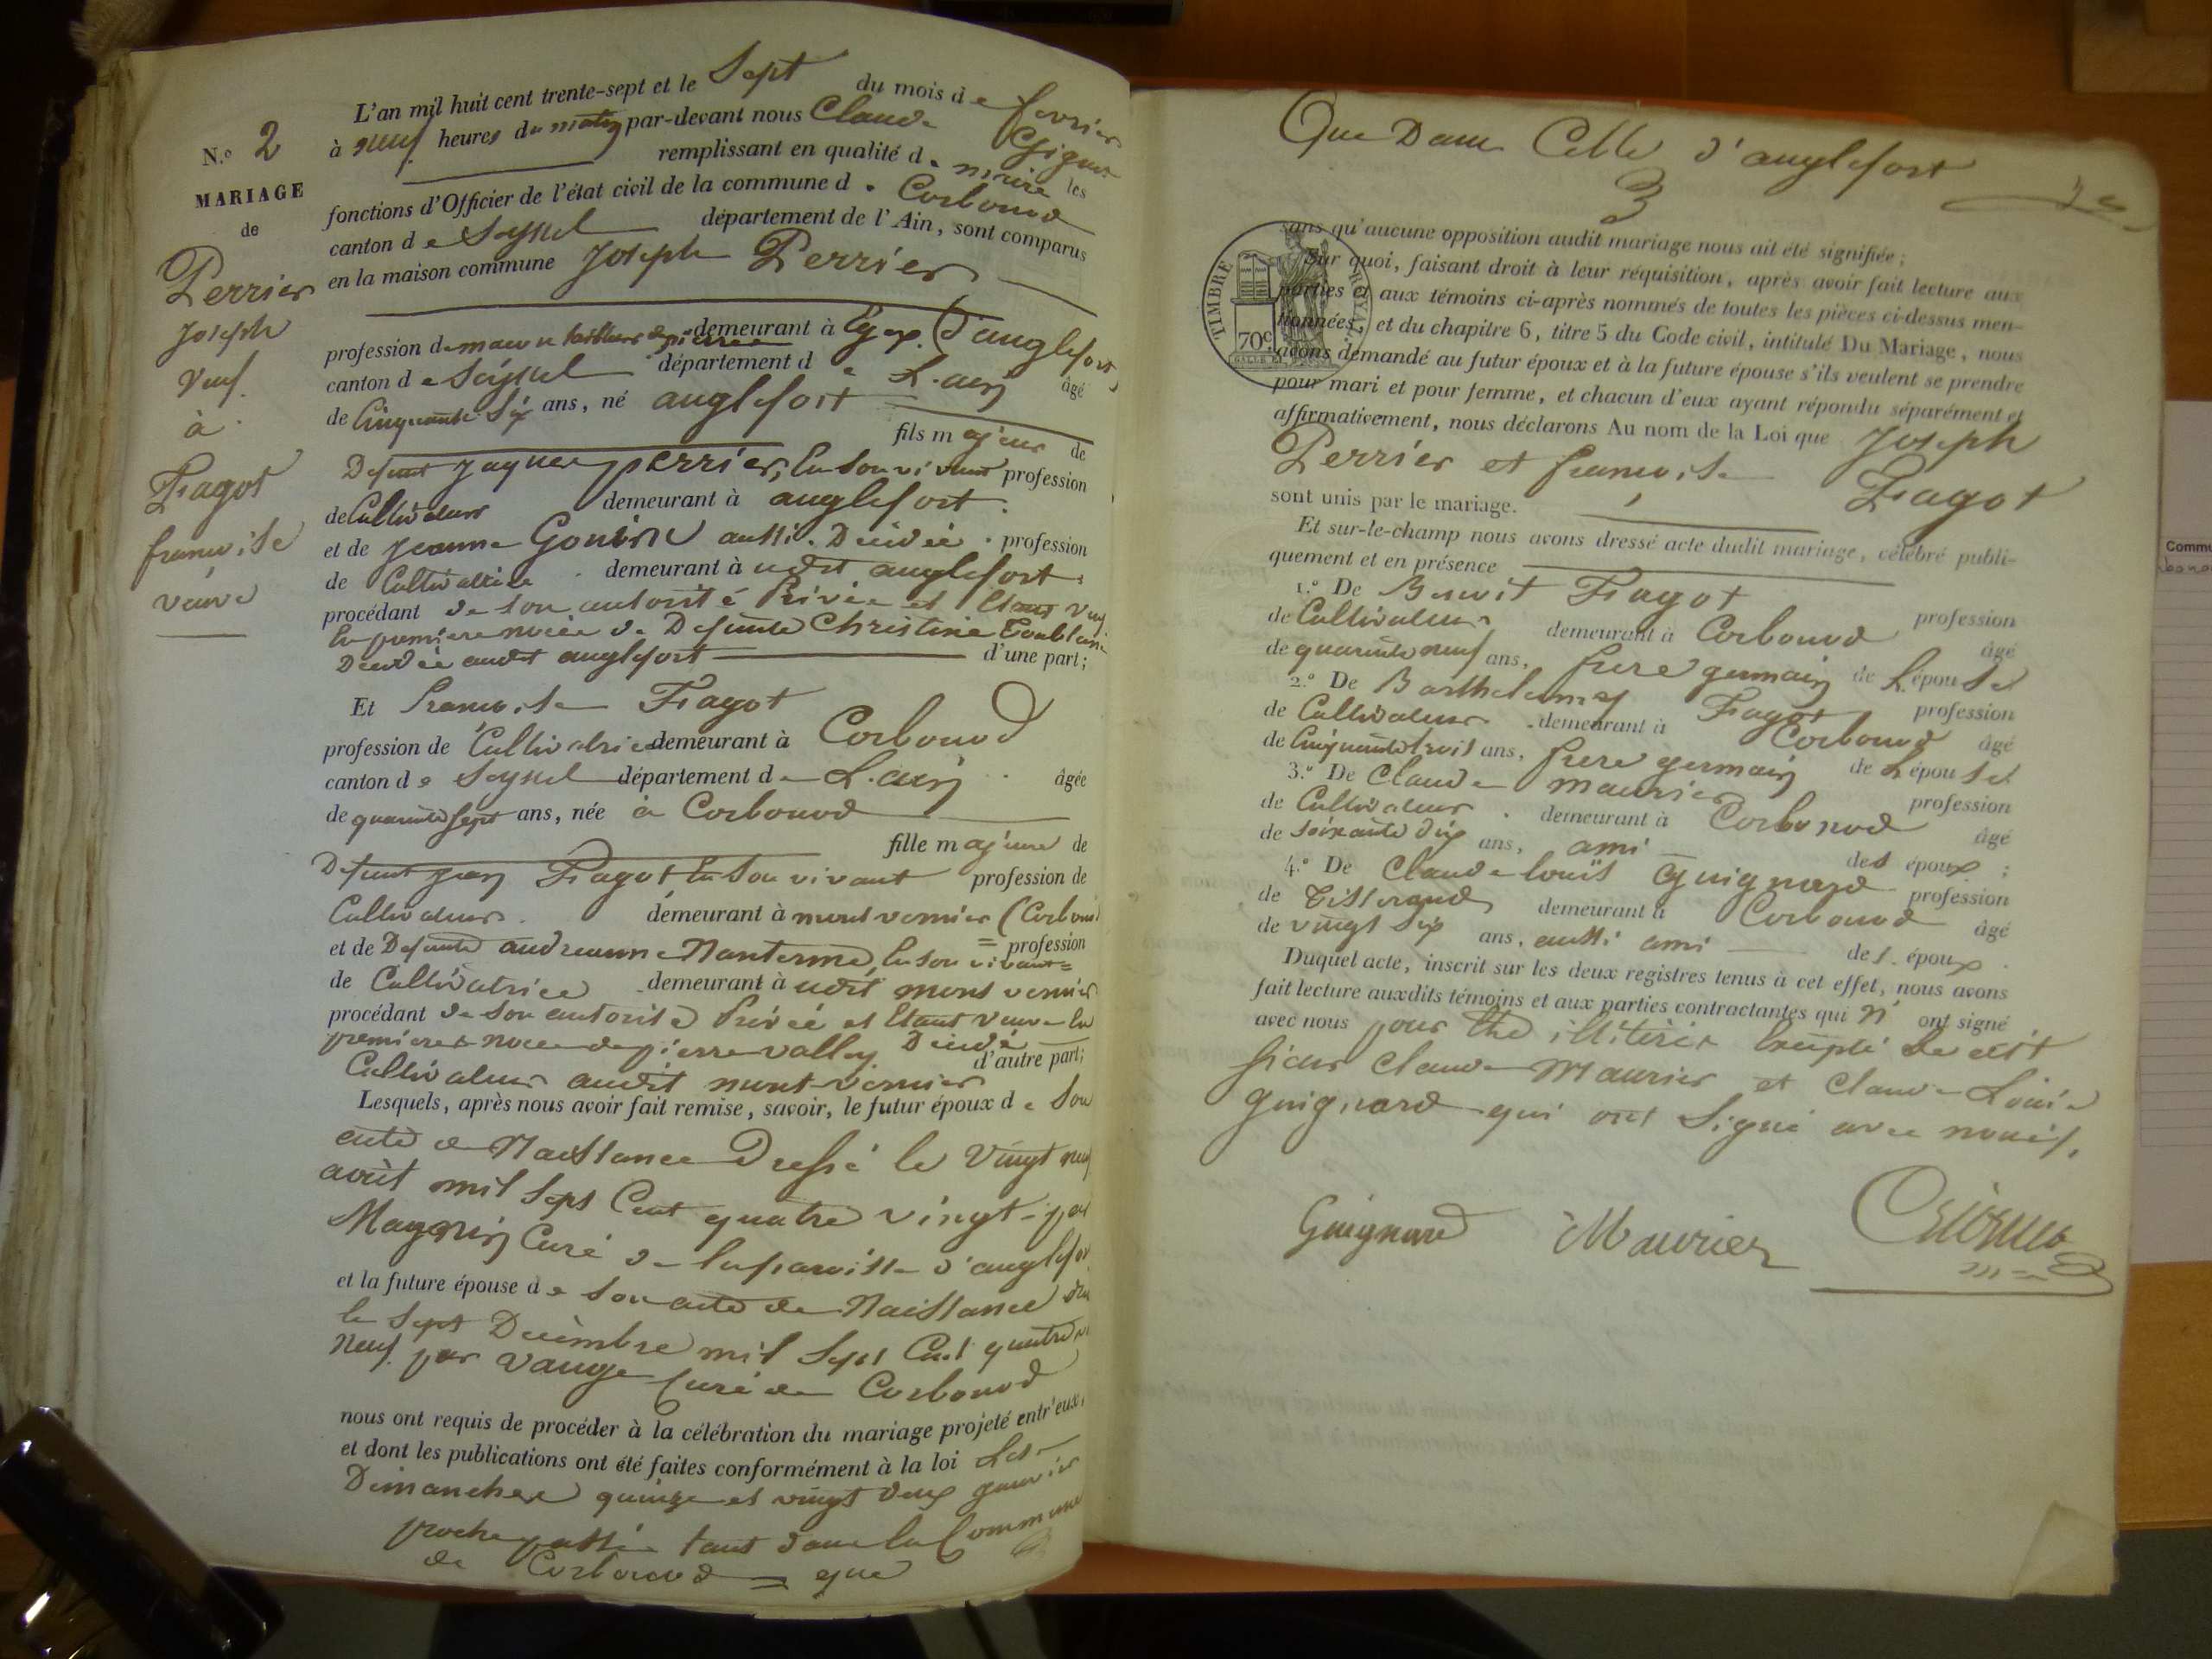 N.o 2
MARIAGE
de
Perrier
Joseph
Veuf
à
Fagot
françoise
veuve
L'an mil huit cent trente-sept et le Sept du mois de fevrier
à neuf heures du matin par-devant nous Claude
remplissant en qualité de maire les
fonctions d'Officier de l'état civil de la commune de Corbonod
canton de Seyssel département de l'Ain, sont comparus
en la maison commune Joseph Perrier
profession de macon tailleur de pierre demeurant à (d'anglefort
canton de Seyssel département de L'ain âgé
de Cinquante Six ans, né anglefort
fils majeur de
Defunt Jaques perrier, En Son vivant profession
de Cultivateur demeurant à anglefort.
et de Jeanne aussi Décédée. profession
de Cultivatrice demeurant à udit anglefort
procédant de son autorité Privée et Etant veuf
En premiere noce de Defunte Christine
Décédée audit anglefort d'une part;
Et françoise Fagot
profession de Cultivatrice demeurant à Corbonod
canton de Seyssel département de L'ain âgée
de quarante sept ans, née à Corbonod
fille majeure de
Defunt jean Fagot En Son vivant profession de
Cultivateur. demeurant à mont vernier (Corbonod
et de Defunte andreanne Nanterme, En son vivant = profession
de Cultivatrice demeurant à udit mont vernier
procédant de Son autorité Privée et Etant veuve En
premiere noce de pierre valley Décédé d'autre part;
Cultivateur audit mont-vernier
Lesquels, après nous avoir fait remise, savoir, le futur époux de Son
acte de Naissance Dressé le Vingt neuf
août mil Sept Cent quatre vingt par
Curé de la paroisse d'anglefort
et la future épouse de Son acte de Naissance du
le Sept Décembre mil Sept Cent quatre
Neuf par vauge Curé de Corbonod
nous ont requis de procéder à la célébration du mariage projeté entr'eux,
et dont les publications ont été faites conformément à la loi Les
Dimanches quinze et vingt deux janvier
proche passé tant dans la Commune
de Corbonod = que
Que Dans Celle d'anglefort
3
TIMBRE ROYAL
70c.
sans qu'aucune opposition audit mariage nous ait été signifiée;
Sur quoi, faisant droit à leur réquisition, après avoir fait lecture aux
parties et aux témoins ci-après nommés de toutes les pièces ci-dessus men-
tionnées, et du chapitre 6, titre 5 du Code civil, intitulé Du Mariage, nous
avons demandé au futur époux et à la future épouse s'ils veulent se prendre
pour mari et pour femme, et chacun d'eux ayant répondu séparément et
affirmativement, nous déclarons Au nom de la Loi que Joseph
Perrier et françoise Fagot
sont unis par le mariage.
Et sur-le-champ nous avons dressé acte dudit mariage, célébré publi-
quement et en présence
1.o De Benoit Fagot profession
de Cultivateur demeurant à Corbonod âgé
de quarante neuf ans, frere germain de L'épouse
2.o De Barthelemy Fagot profession
de Cultivateur demeurant à Corbonod âgé
de Cinquante trois ans, frere germain de L'épouse
3.o De Claude maurier profession
de Cultivateur demeurant à Corbonod âgé
de Soixante dix ans, ami des époux;
4.o De Claude louis Guignard profession
de Tisserand demeurant à Corbonod âgé
de vingt Six ans, aussi ami des époux.
Duquel acte, inscrit sur les deux registres tenus à cet effet, nous avons
fait lecture auxdits témoins et aux parties contractantes qui n' ont signé
avec nous pour être illitérés Excepté
Sieur Claude Maurier et Claude Louis
Guignard qui ont Signé avec nous.
Guignard Maurier